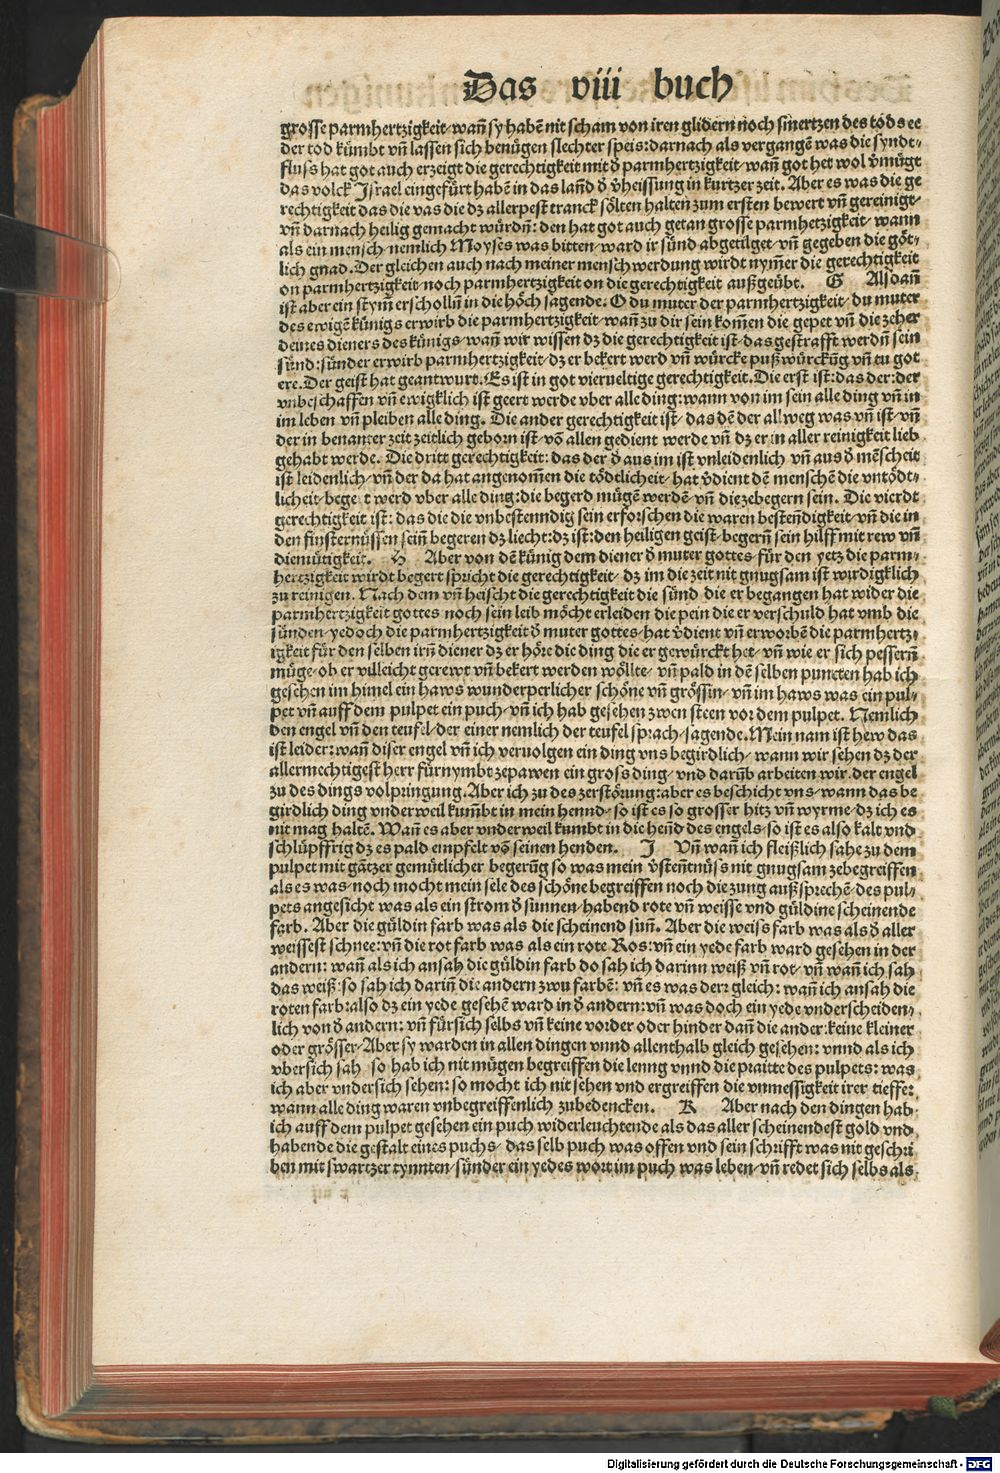 Das viii buch
grosse parmhertzigkeit/wañ sy habẽ nit scham von iren glidern noch smertzen des tods ee
der tod kümbt vñ lassen sich benügen slechter speis:darnach als vergangẽ was die syndt-
fluss hat got auch erzeigt die gerechtigkeit mit d̕ parmhertzigkeit/wañ got het wol v̕mügt
das volck Israel eingefürt habẽ in das lañd d̕ v̕heissung in kurtzer zeit. Aber es was die ge
rechtigkeit das die vas die dz allerpest tranck sölten halten zum ersten bewert vñ gereinigt/
vñ darnach heilig gemacht würdñ: den hat got auch getan grosse parmhetzigkeit/ wann
als ein mensch/nemlich Moyses was bitten/ward ir sünd abgetilget/vñ gegeben die göt-
lich gnad.Der gleichen auch nach meiner menschwerdung wirdt nym̃er die gerechtigkeit
on parmhertzigkeit/noch parmhertzigkeit on die gerechtigkeit außgeübt. G Alsdañ
ist aber ein stym̃ erschollñ in die höch sagende. O du muter der parmhertzigkeit/du muter
des ewigẽ künigs erwirb die parmhertzigkeit/wañ zu dir sein kom̃en die gepet vñ die zeher
deines dieners des künigs/wañ wir wissen dz die gerechtigkeit ist/das gestrafft werdñ sein
sünd:sünder erwirb parmhertzigkeit/dz er bekert werd vñ würcke pußwürckũg vñ tu got
ere.Der geist hat geantwurt.Es ist in got vierueltige gerechtigkeit.Die erst ist:das der:der
vnbeschaffen vñ ewigklich ist geert werde vber alle ding:wann von im sein alle ding vñ in
im leben vñ pleiben alle ding. Die ander gerechtigkeit ist/das dẽ der allweg was vñ ist/vñ
der in benanter zeit zeitlich geborn ist/võ allen gedient werde vñ dz er in aller reinigkeit lieb
gehabt werde. Die dritt gerechtigkeit: das der d̕ aus im ist vnleidenlich vñ aus d̕ mẽscheit
ist leidenlich/vñ der da hat angenom̃en die tödtlicheit/hat v̕dient dẽ menschẽ die vntödt-
licheit/begert werd vber alle ding:die begerd mügẽ werdẽ vñ die zebegern sein. Die vierdt
gerechtigkeit ist: das die die vnbestenndig sein erforschen die waren bestẽdigkeit/vñ die in
den finsternüssen seiñ begeren dz liecht:dz ist:den heiligen geist/begerñ sein hilff mit rew vñ
diemütigkeit. H Aber von dẽ künig dem diener d̕ muter gottes/für den yetz die parm-
hertzigkeit wirdt begert spricht die gerechtigkeit/dz im die zeit nit gnugsam ist wirdigklich
zu reinigen. Nach dem vñ heischt die gerechtigkeit die sünd die er begangen hat wider die
parmhertzigkeit gottes noch sein leib möcht erleiden die pein die er verschuld hat vmb die
sünden/yedoch die parmhertzigkeit d̕ muter gottes/hat v̕dient vñ erworbẽ die parmhertz-
igkeit für den selben irñ diener dz er höre die ding die er gewürckt het/vñ wie er sich pesserñ
müge/ob er villeicht gerewt vñ bekert werden wöllte/vñ pald in dẽ selben puncten hab ich
gesehen im himel ein haws wunderperlicher schöne vñ grössin/vñ im haws was ein pul-
pet vñ auff dem pulpet ein puch/vñ ich hab gesehen zwen steen vor dem pulpet. Nemlich
den engel vñ den teufel/der einer nemlich der teufel sprach/sagende.Mein nam ist hew das
ist leider:wañ diser engel vñ ich veruolgen ein ding vns begirdlich/wann wir sehen dz der
allermechtigest herr fürnymbt zepawen ein gross ding/vnd darũb arbeiten wir.der engel
zu des dings volpringung.Aber ich zu des zerstörung:aber es beschicht vns/wann das be
girdlich ding vnderweil kum̃bt in mein hennd/so ist es so grosser hitz vñ wyrme/dz ich es
nit mag haltẽ. Wañ es aber vnderweil kumbt in die heñd des engels/so ist es also kalt vnd
schlüpffrig dz es pald empfelt võ seinen henden. I Vñ wañ ich fleißlich sahe zu dem
pulpet mit gãtzer gemütlicher begerũg so was mein v̕stentnüss nit gnugsam zebegreiffen
als es was/noch mocht mein sele des schöne begreiffen noch die zung außsprechẽ/des pul-
pets angesicht was als ein strom d̕ sunnen/habend rote vñ weisse vnd güldine scheinende
farb. Aber die güldin farb was als die scheinend suñ. Aber die weiss farb was als d̕ aller
weissest schnee:vñ die rot farb was als ein rote Ros:vñ ein yede farb ward gesehen in der
andern: wañ als ich ansah die güldin farb do sah ich darinn weiß vñ rot/vñ wañ ich sah
das weiß:so sah ich dariñ die andern zwu farbẽ: vñ es was derr gleich: wañ ich ansah die
roten farb:also dz ein yede gesehẽ ward in d̕ andern:vñ was doch ein yede vnderscheiden-
lich von d̕ andern: vñ fürsich selbs vñ keine vorder oder hinder dañ die ander:keine kleiner
oder grösser/Aber sy warden in allen dingen vnnd allenthalb gleich gesehen: vnnd als ich
vbersich sah so hab ich nit mügen begreiffen die lenng vnnd die praitte des pulpets: was
ich aber vndersich sehen: so mocht ich nit sehen vnd ergreiffen die vnmessigkeit irer tieffe:
wann alle ding waren vnbegreiffenlich zubedencken. K Aber nach den dingen hab
ich auff dem pulpet gesehen ein puch widerleuchtende als das aller scheinendest gold vnd
habende die gestalt eines puchs/das selb puch was offen vnd sein schrifft was nit geschri
ben mit swartzer tynnten/sünder ein yedes wort im puch was leben/vñ redet sich selbs als
Digitalisierung gefördert durch die Deutsche Forschungsgemeinschaft - DFG